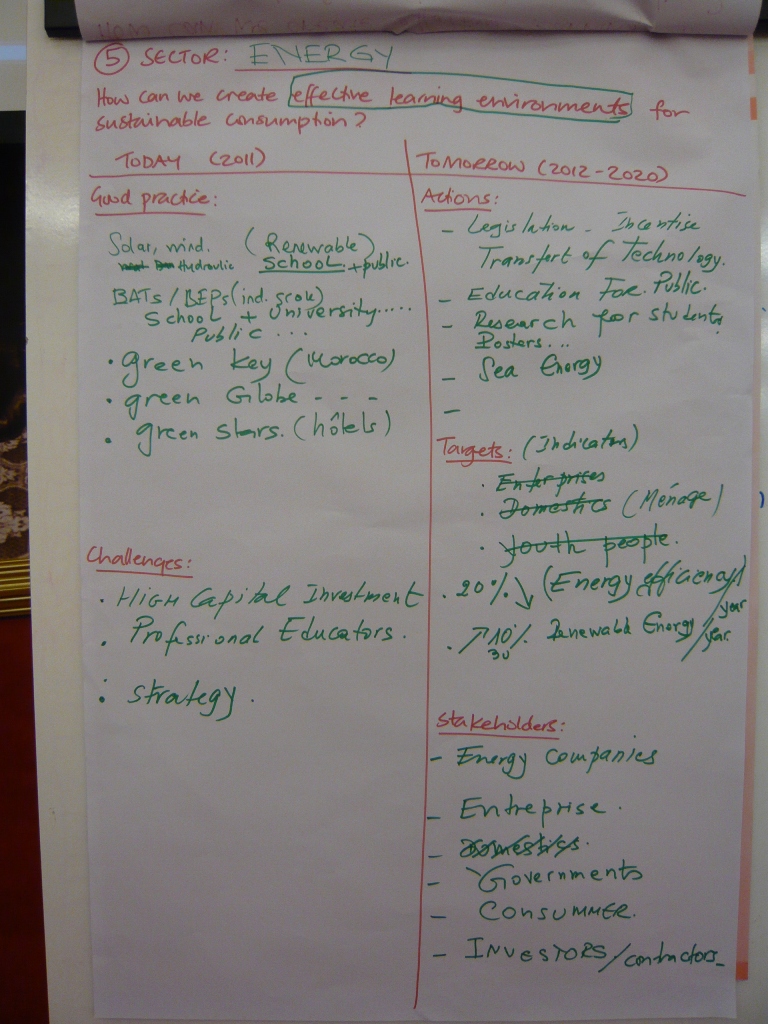 ⑤ SECTOR: ENERGY
How can we create effective learning environments for
sustainable consumption?
TODAY (2011)
Good practice:
Solar, wind. (Renewable)
Hydraulic SCHOOL + public.
BATs / BEPs (ind.
School + University.....
Public ...
• green key (Morocco)
• green Globe - - -
• green stars. (hôtels)
Challenges:
• High Capital Investment
• Professional Educators.
• strategy.
TOMORROW (2012-2020)
Actions:
- Legislation - Incentise
Transfert of Technology.
- Education For Public.
- Research for students
Posters...
- Sea Energy
-
Targets: (Indicators)
• Enterprises
• Domestics (Ménage)
• Youth people.
• 20% ↘ (Energy efficiency) / year
• ↗ 10% Renewabld Energy / year.
30
Stakeholders:
- Energy companies
- Entreprise.
- Domestics.
- Governments
- Consummer.
- INVESTORS / contractors_